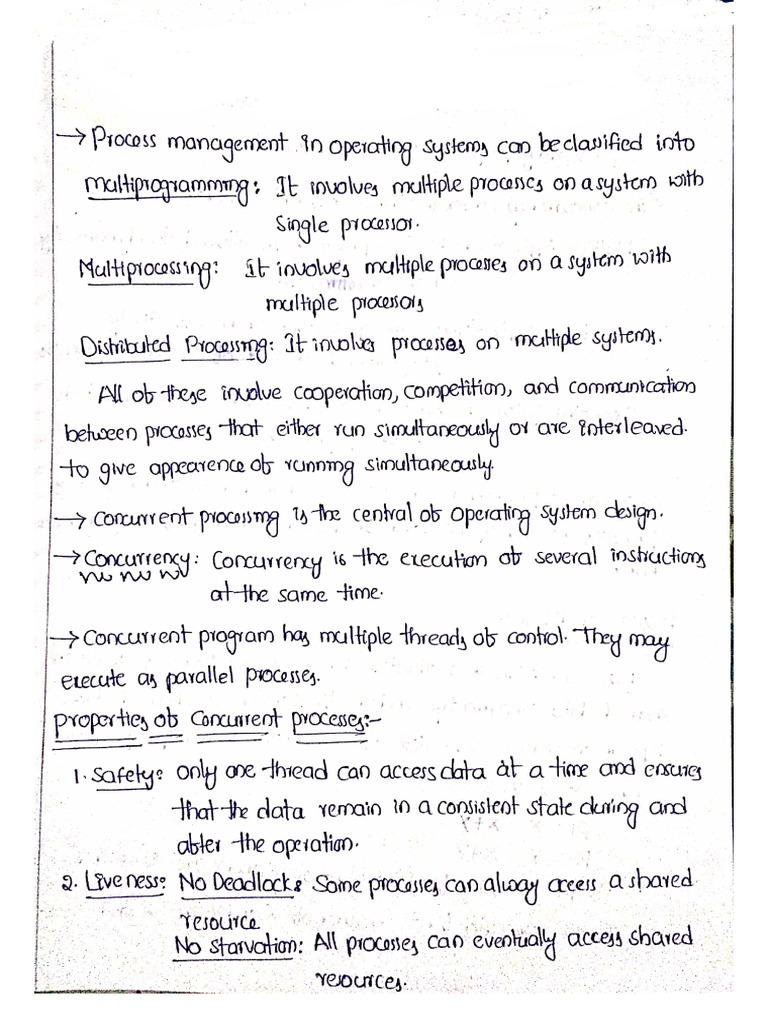 → Process management in operating systems can be classified into
Multiprogramming: It involves multiple processes on a system with
Single processor.
Multiprocessing: It involves multiple processes on a system with
multiple processors
Distributed Processing: It involves processes on multiple systems.
All of these involve cooperation, competition, and communication
between processes that either run simultaneously or are interleaved.
to give appearence of running simultaneously.
→ Concurrent processing is the central of operating system design.
→ Concurrency: Concurrency is the execution of several instructions
at the same time.
→ Concurrent program has multiple threads of control. They may
execute as parallel processes.
Properties of Concurrent processes:-
1. Safety: only one thread can access data at a time and ensures
that the data remain in a consistent state during and
after the operation.
2. Liveness: No Deadlock: Some processes can alway access a shared
resource
No starvation: All processes can eventually access shared
resources.